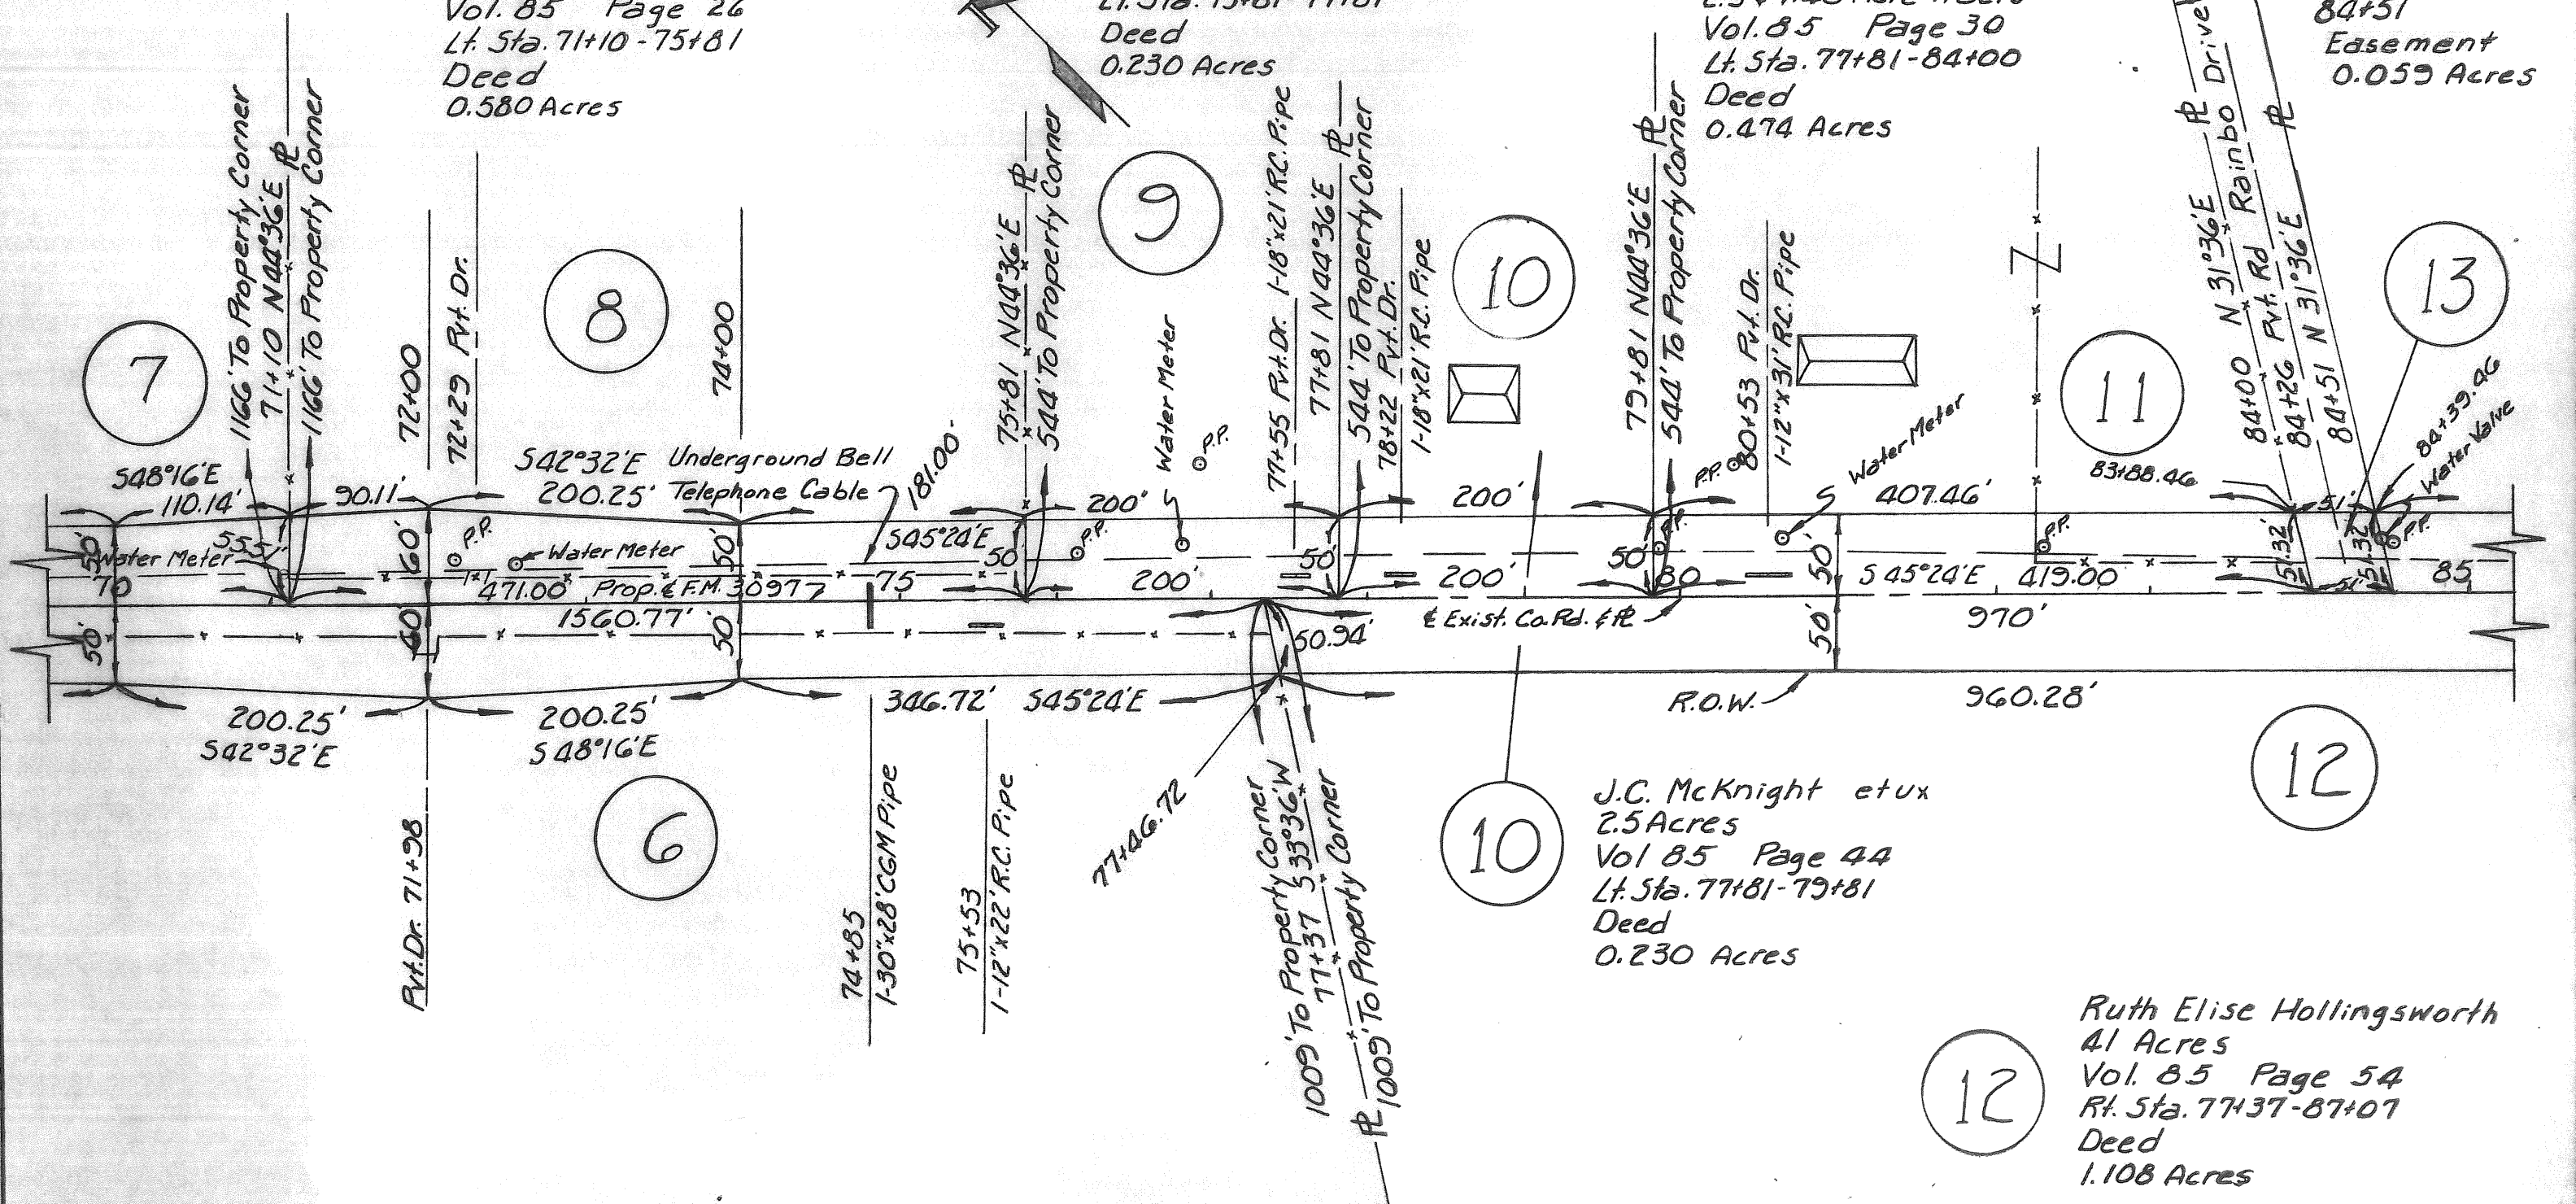 Vol. 85 Page 26
Lt. Sta. 71+10-75+81
Deed
0.580 Acres
Deed
0.230 Acres
Vol. 85 Page 30
Lt. Sta. 77+81-84+00
Deed
0.474 Acres
84+51
Easement
0.059 Acres
1166' To Property Corner
71+10 N44°36'E PL
1166' To Property Corner
72+00
72+29 Pvt. Dr.
74+00
75+81 N44°36'E PL
544' To Property Corner
Water Meter
P.P.
77+55 Pvt. Dr. 1-18"x21' R.C. Pipe
77+81 N44°36'E PL
544' To Property Corner
78+22 Pvt. Dr.
1-18"x21' R.C. Pipe
79+81 N44°36'E PL
544' To Property Corner
80+53 Pvt. Dr.
1-12"x31' R.C. Pipe
P.P.
Water Meter
84+00 N 31°36'E PL
84+26 Pvt. Rd Rainbo
84+51 N 31°36'E PL
84+39.46
Water Valve
7
8
9
10
11
13
S48°16'E
110.14'
90.11'
S42°32'E
200.25'
Underground Bell
Telephone Cable
181.00'
S45°24'E
200'
200'
407.46'
83+88.46
51'
50'
55.51'
Water Meter
60'
P.P.
Water Meter
50'
50'
P.P.
50'
50'
P.P.
50'
P.P.
51.32'
51.32'
P.P.
70
471.00'
Prop. ℄ F.M. 3097
75
200'
200'
80
S 45°24'E
419.00
51'
85
50'
60'
1560.77'
50'
50.94'
℄ Exist. Co. Rd. & PL
50'
970'
200.25'
S42°32'E
200.25'
S48°16'E
346.72'
S45°24'E
R.O.W.
960.28'
6
12
Pvt. Dr. 71+98
74+85
1-30"x28' CGM Pipe
75+53
1-12"x22' R.C. Pipe
77+46.72
1009' To Property Corner
77+37 S33°36'W
PL
1009' To Property Corner
10
J.C. McKnight etux
2.5 Acres
Vol 85 Page 44
Lt. Sta. 77+81-79+81
Deed
0.230 Acres
12
Ruth Elise Hollingsworth
41 Acres
Vol. 85 Page 54
Rt. Sta. 77+37-87+07
Deed
1.108 Acres